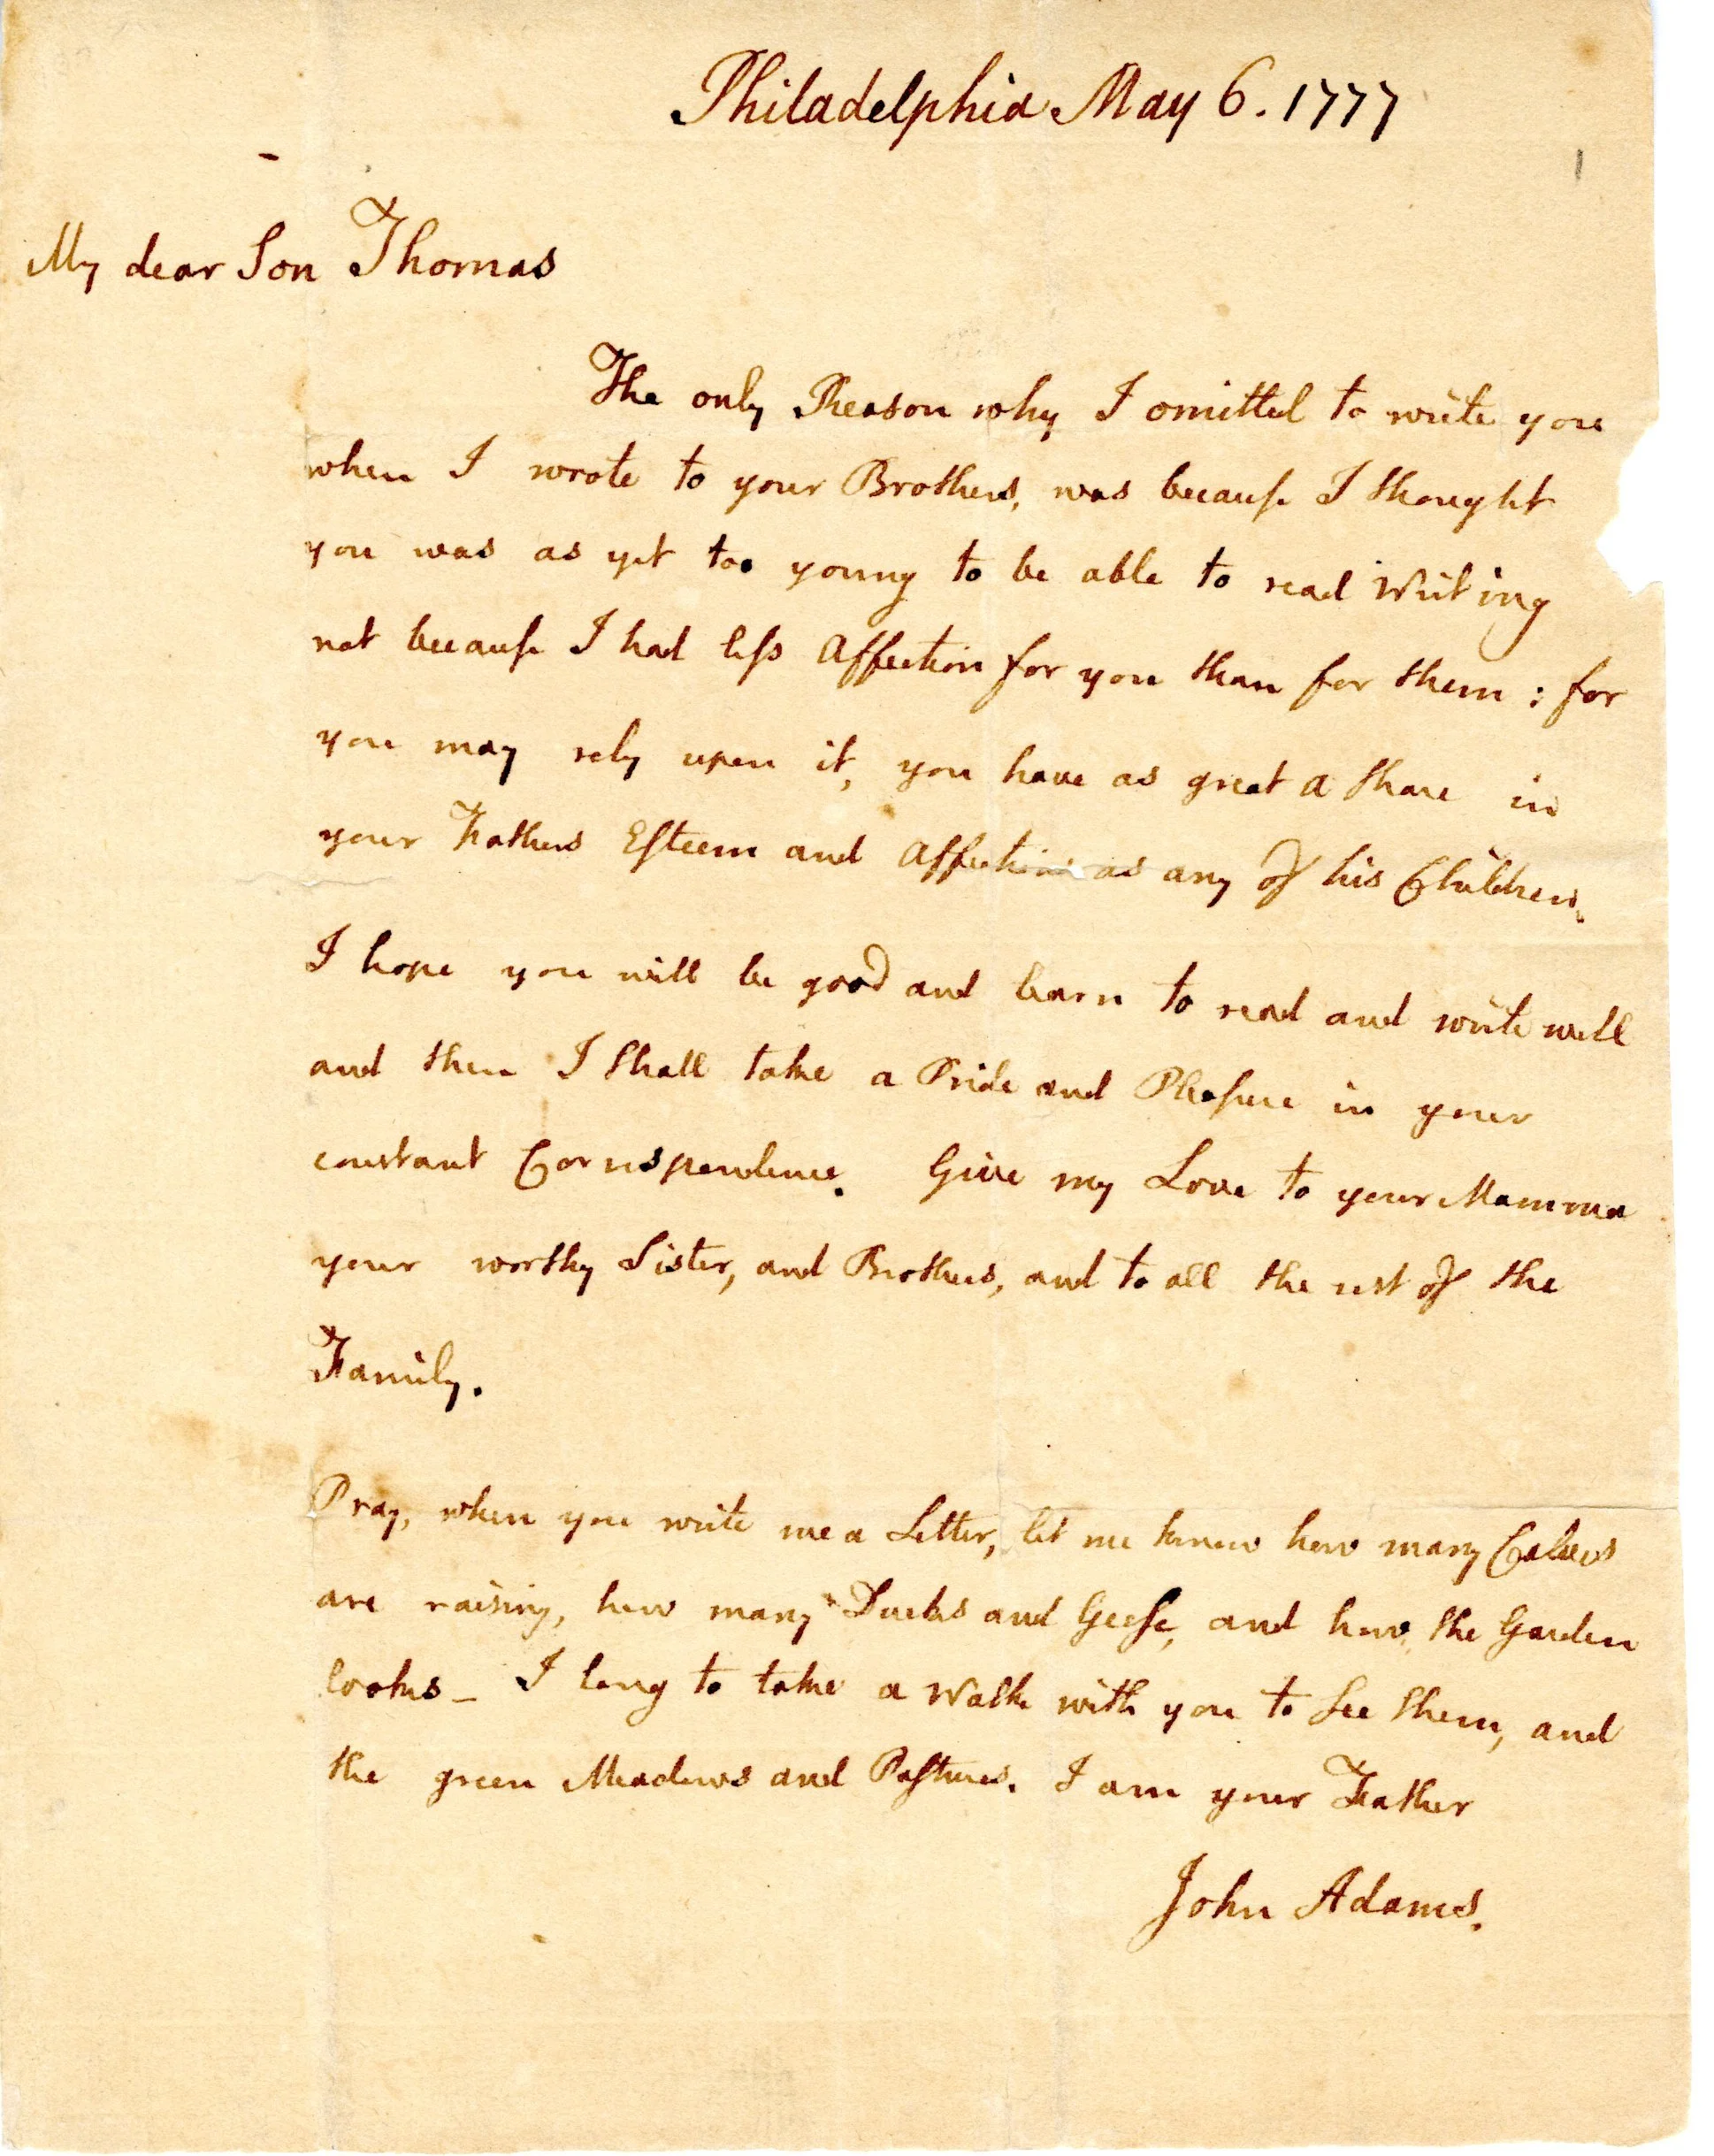 Philadelphia May 6. 1777
My dear Son Thomas
The only Reason why I omitted to write you
when I wrote to your Brothers, was because I thought
you was as yet too young to be able to read Writing
not because I had less Affection for you than for them : for
you may rely upon it, you have as great a share in
your Fathers Esteem and Affection as any of his Children.
I hope you will be good and learn to read and write well
and then I shall take a Pride and Pleasure in your
constant Correspondence. Give my Love to your Mamma
your worthy Sister, and Brothers, and to all the rest of the
Family.
Pray, when you write me a Letter, let me know how many Calves
are raising, how many Ducks and Geese, and how the Garden
looks – I long to take a Walk with you to see them, and
the green Meadows and Pastures. I am your Father
John Adams.